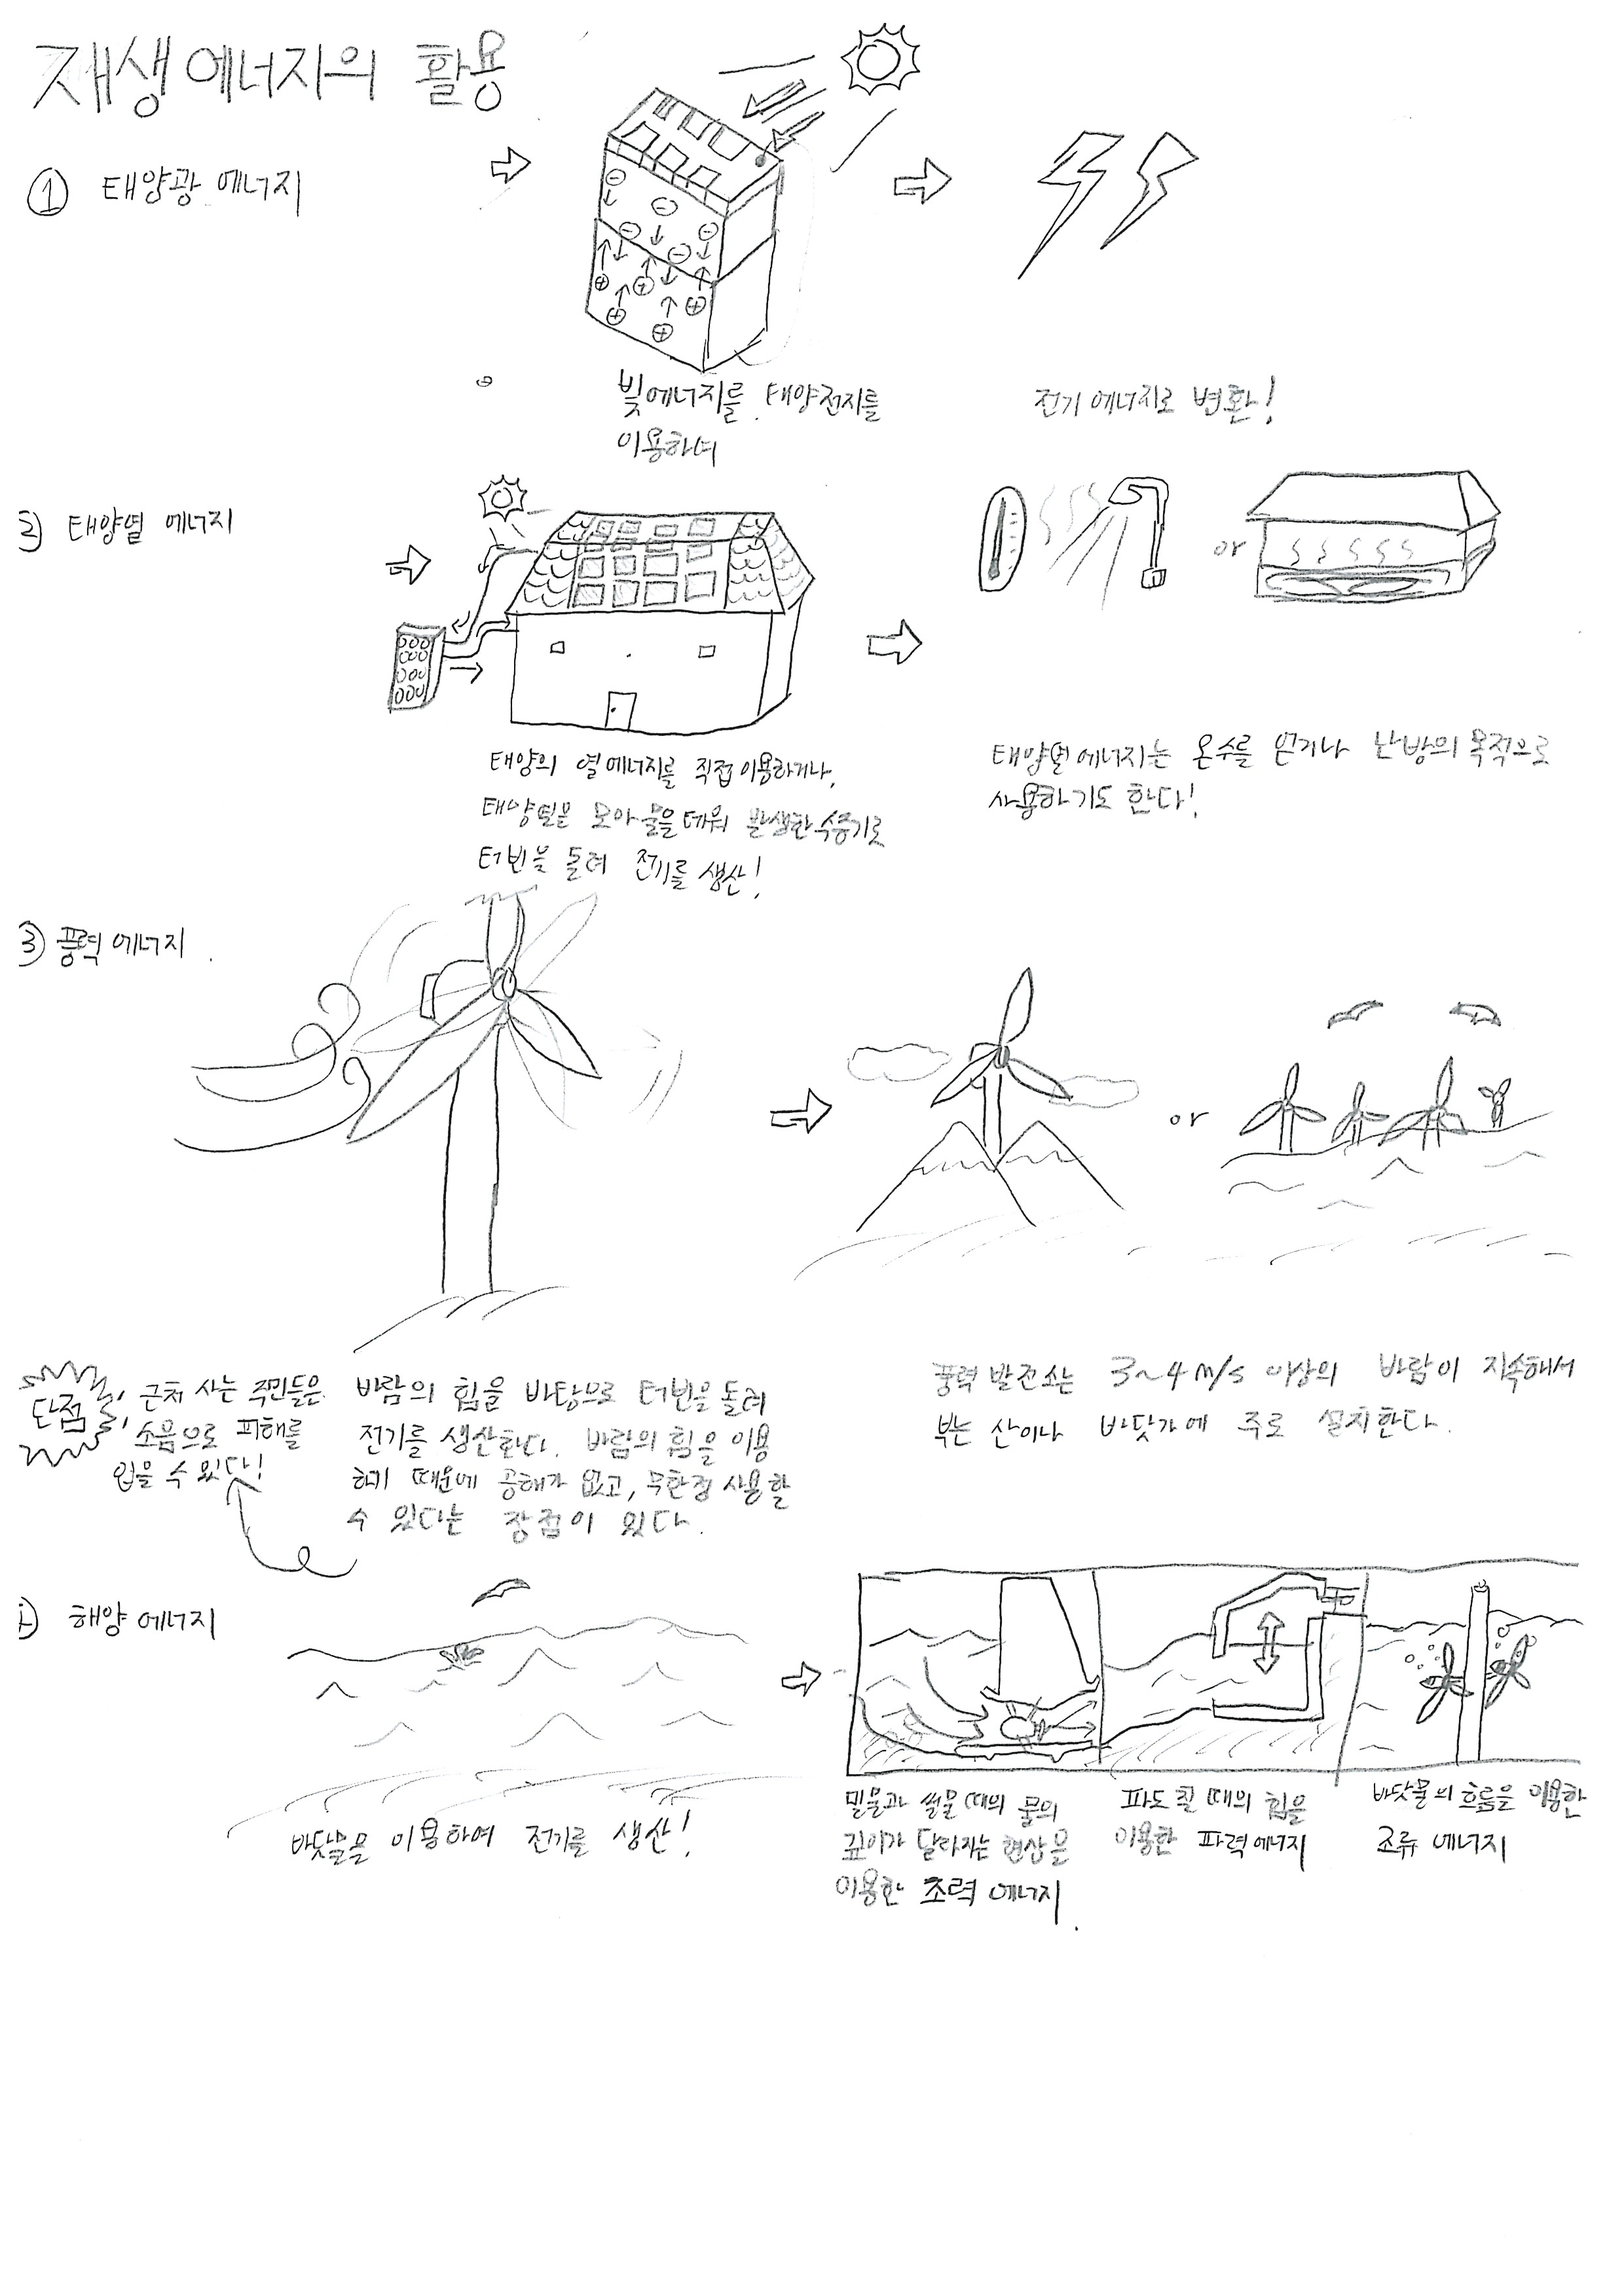 재생에너지의 활용
① 태양광 에너지
빛에너지를 태양전지를
이용하여
전기 에너지로 변환!
② 태양열 에너지
or
태양의 열에너지를 직접 이용하거나,
태양열을 모아 물을 데워 발생한 수증기로
터빈을 돌려 전기를 생산!
태양열에너지는 온수를 얻거나 난방의 목적으로
사용하기도 한다!
③ 풍력 에너지
or
단점
근처 사는 주민들은
소음으로 피해를
입을 수 있다!
바람의 힘을 바탕으로 터빈을 돌려
전기를 생산한다. 바람의 힘을 이용
하기 때문에 공해가 없고, 무한정 사용할
수 있다는 장점이 있다.
풍력 발전소는 3~4 m/s 이상의 바람이 지속해서
부는 산이나 바닷가에 주로 설치한다.
해양 에너지
바닷물을 이용하여 전기를 생산!
밀물과 썰물 때의 물의
깊이가 달라지는 현상을
이용한 조력 에너지.
파도 칠 때의 힘을
이용한 파력에너지
바닷물의 흐름을 이용한
조류 에너지